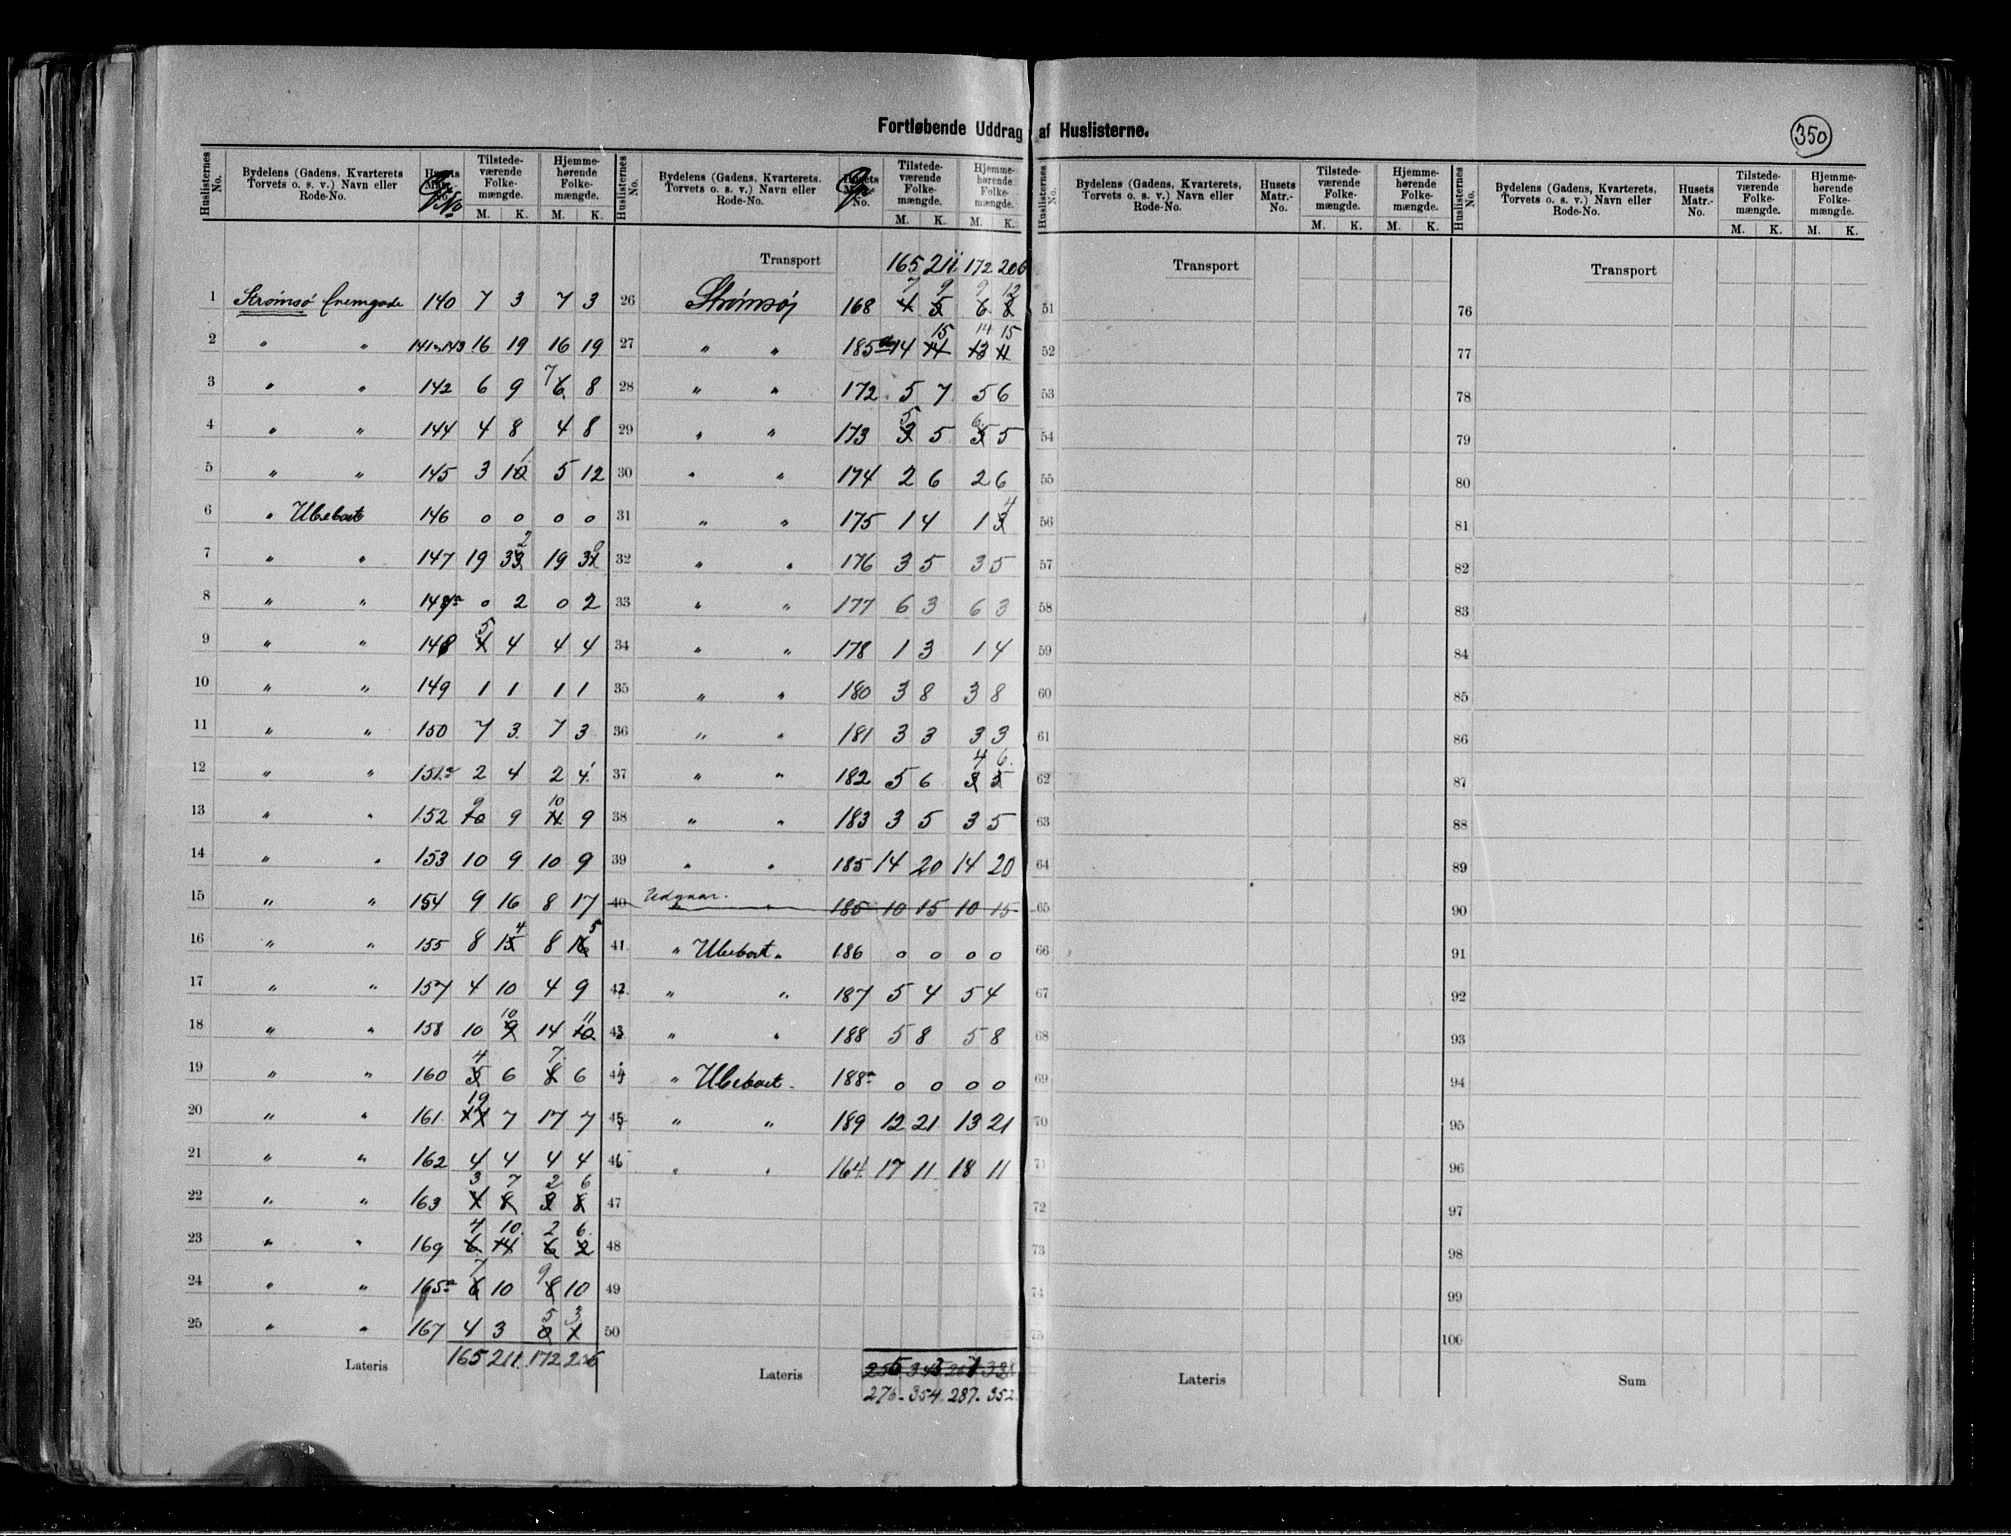 Fortløbende Uddrag af Huslisterne.
350
Huslisternes No. Bydelens (Gadens, Kvarterets Torvets o. s. v.) Navn eller Rode-No. Husets Matr.-No. Tilstede-værende Folke-mængde. M. K. Hjemme-hørende Folke-mængde. M. K.
Huslisternes No. Bydelens (Gadens, Kvarterets. Torvets o. s. v.) Navn eller Rode-No. Husets Matr.-No. Tilstede-værende Folke-mængde. M. K. Hjemme-hørende Folke-mængde. M. K.
Huslisternes No. Bydelens (Gadens, Kvarterets, Torvets o. s. v.) Navn eller Rode-No. Husets Matr.-No. Tilstede-værende Folke-mængde. M. K. Hjemme-hørende Folke-mængde. M. K.
Huslisternes No. Bydelens (Gadens, Kvarterets, Torvets o. s. v.) Navn eller Rode-No. Husets Matr.-No. Tilstede-værende Folke-mængde. M. K. Hjemme-hørende Folke-mængde. M. K.
1 Strømsø 140 7 3 7 3
2 " " 141 143 16 19 16 19
3 " " 142 6 9 7 6 8
4 " " 144 4 8 4 8
5 " " 145 3 10 5 12
6 " Ubeboet 146 0 0 0 0
7 " " 147 19 33 2 19 31
8 " " 147a 0 2 0 2
9 " " 148 5 4 4 4 4
10 " " 149 1 1 1 1
11 " " 150 7 3 7 3
12 " " 151a 2 4 2 4
13 " " 152 9 10 9 10 11 9
14 " " 153 10 9 10 9
15 " " 154 9 16 8 17
16 " " 155 8 15 4 8 16 5
17 " " 157 4 10 4 9
18 " " 158 10 10 9 14 11 10
19 " " 160 4 5 6 7 8 6
20 " " 161 19 17 7 17 7
21 " " 162 4 4 4 4
22 " " 163 3 4 7 8 2 3 6 8
23 " " 169 4 6 10 14 2 6 6 2
24 " " 165a 7 6 10 9 8 10
25 " " 167 4 3 5 3
Lateris 165 211 172 206
Transport 165 211 172 206
26 Strømsø 168 7 4 9 5 9 6 12 8
27 " " 185a 14 15 14 14 13 15 11
28 " " 172 5 7 5 6
29 " " 173 5 3 5 6 5 5
30 " " 174 2 6 2 6
31 " " 175 1 4 1 4 3
32 " " 176 3 5 3 5
33 " " 177 6 3 6 3
34 " " 178 1 3 1 4
35 " " 180 3 8 3 8
36 " " 181 3 3 3 3
37 " " 182 5 6 4 3 6 5
38 " " 183 3 5 3 5
39 " " 185 14 20 14 20
40 Udgaar. 185 10 15 10 15
41 " Ubeboet " 186 0 0 0 0
42 " " 187 5 4 5 4
43 " " 188 5 8 5 8
44 " Ubeboet " 188a 0 0 0 0
45 " " 189 12 21 13 21
46 " " 164 17 11 18 11
47
48
49
50
Lateris
276 - 354 287 - 352
Transport
51
52
53
54
55
56
57
58
59
60
61
62
63
64
65
66
67
68
69
70
71
72
73
74
75
Lateris
Transport
76
77
78
79
80
81
82
83
84
85
86
87
88
89
90
91
92
93
94
95
96
97
98
99
100
Sum